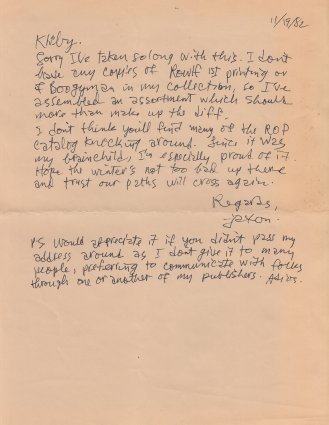 11/19/82
Kirby.
Sorry I've taken so long with this. I don't
have any copies of Rowlf 1st printing or
of Boogyman in my collection, so I've
assembled an assortment which should
more than make up the diff.
I don't think you'll find many of the ROP
catalog knocking around. Since it was
my brainchild, I'm especially proud of it.
Hope the winter's not too bad up there
and trust our paths will cross again.
Regards,
Jaxon.
PS Would appreciate it if you didn't pass my
address around as I don't give it to many
people, preferring to communicate with folks
through one or another of my publishers. Adios.